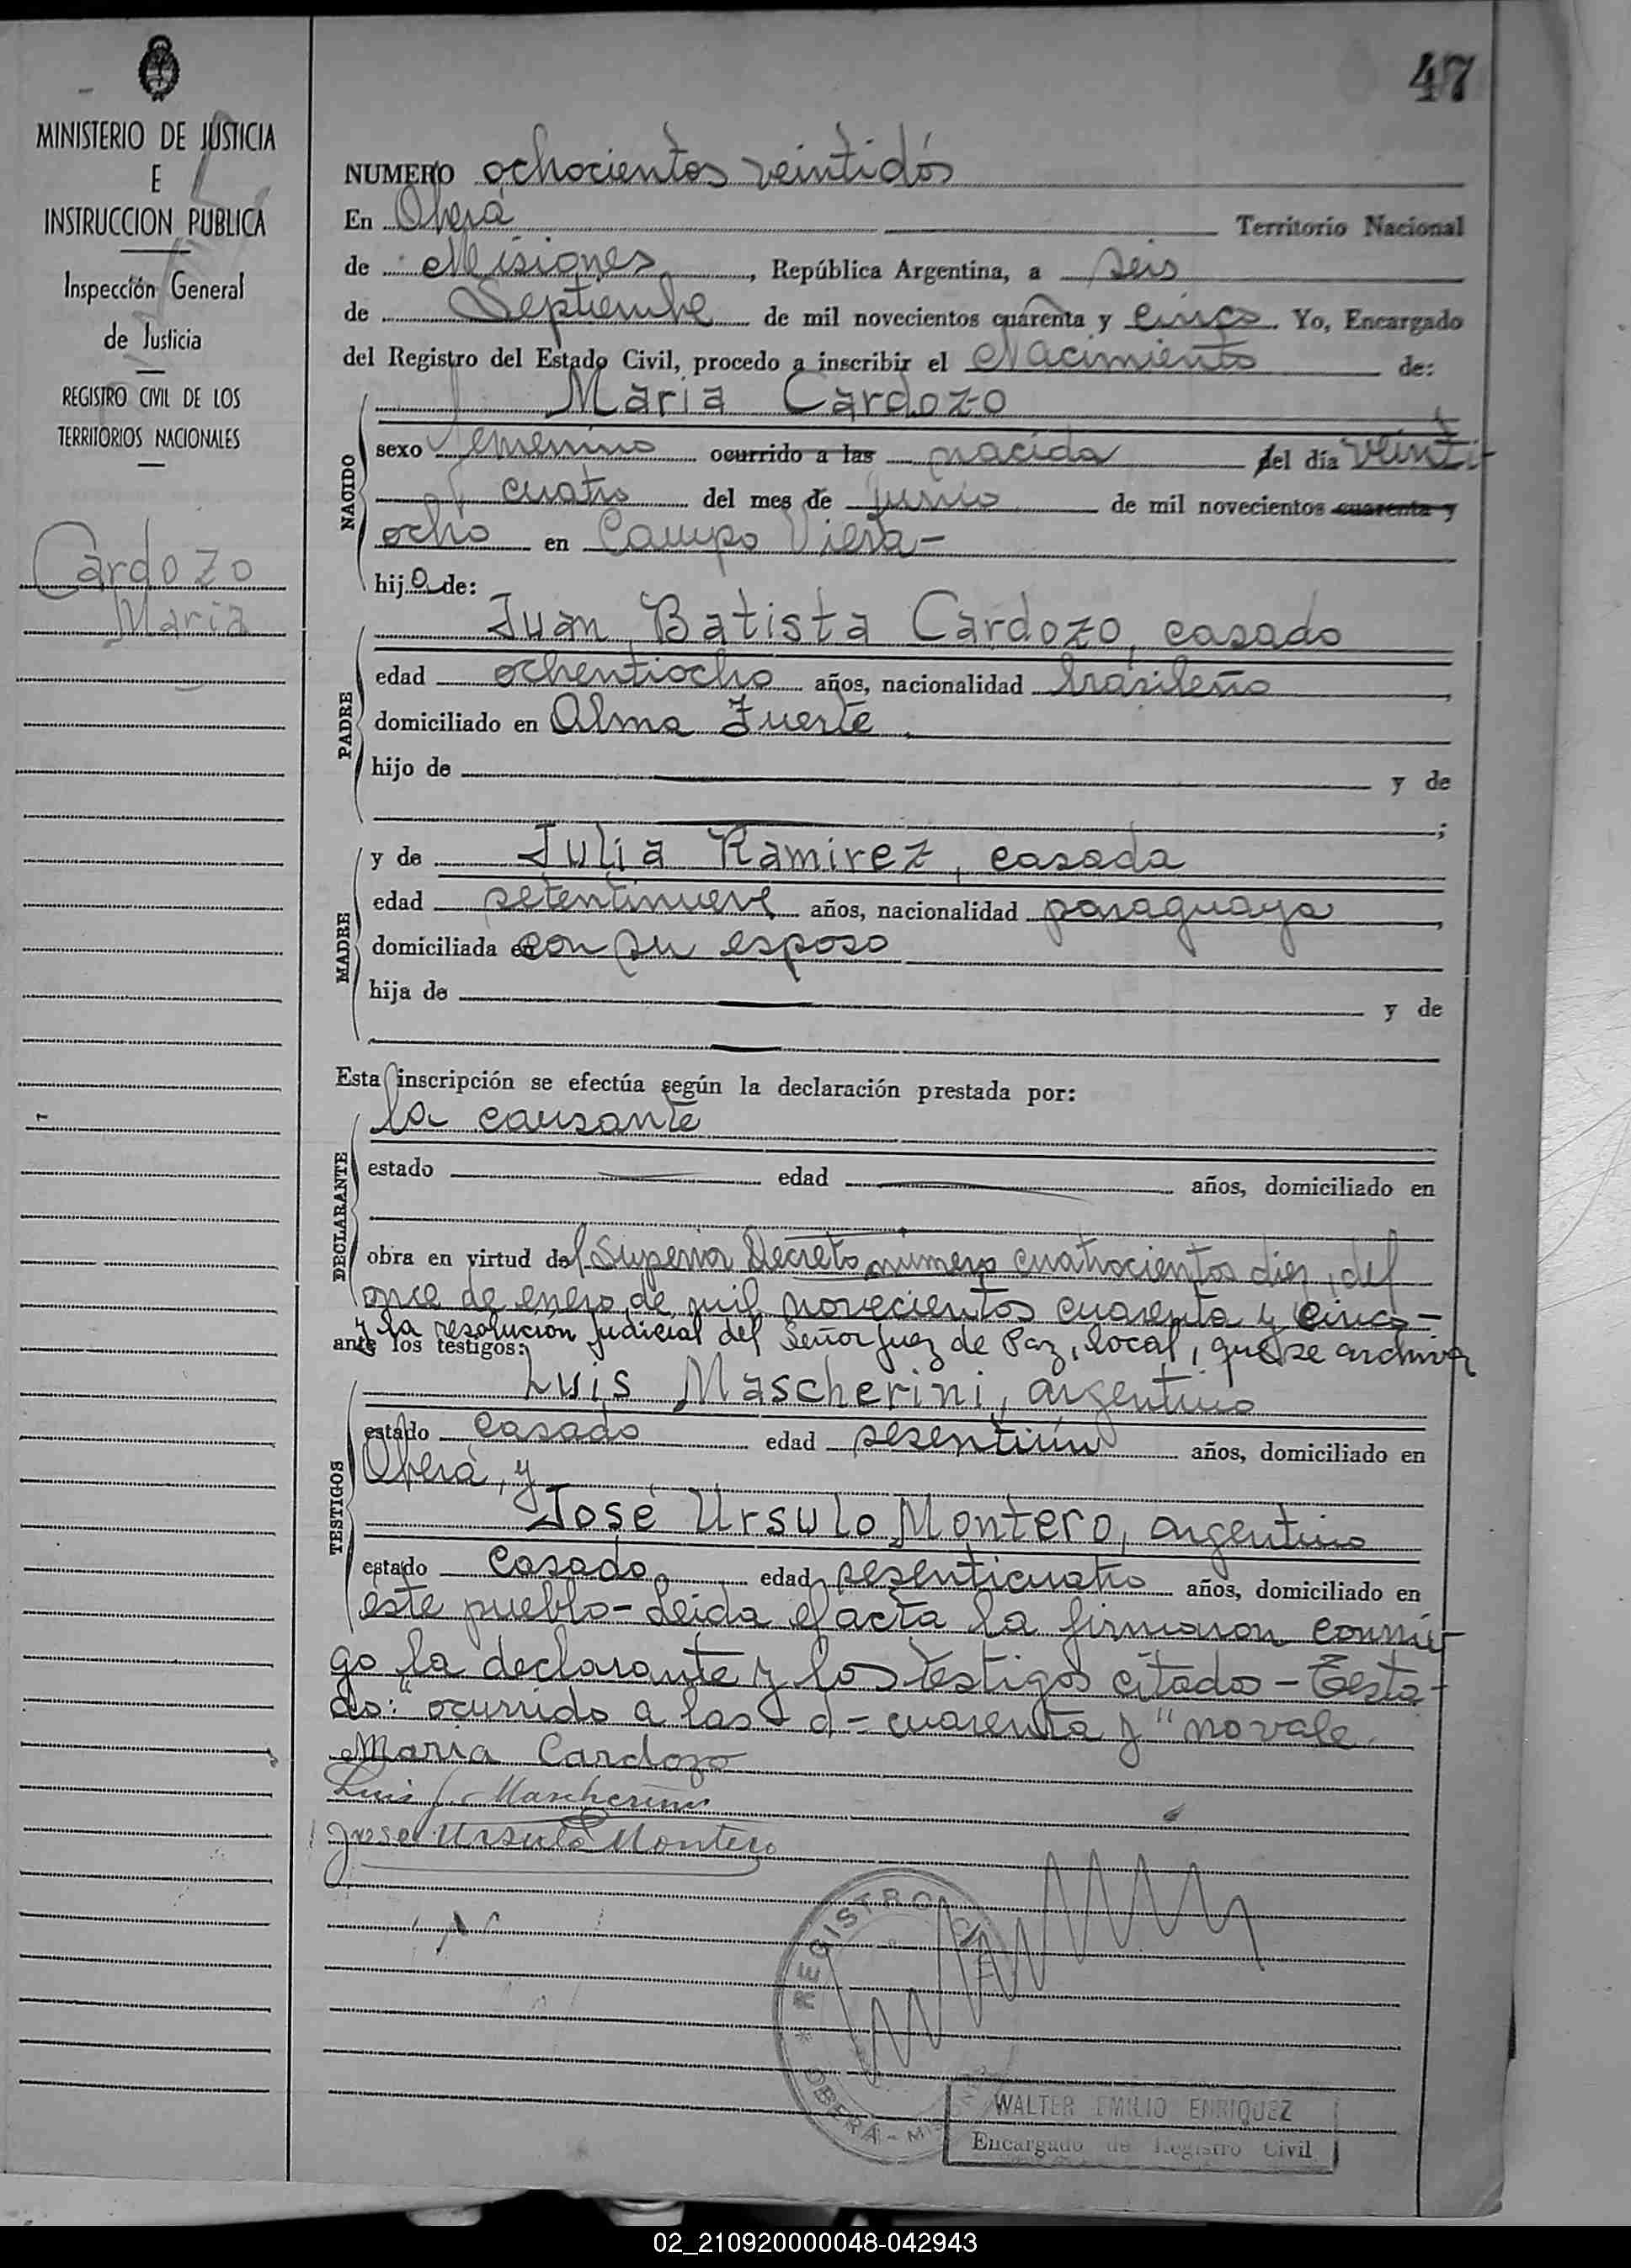 47
MINISTERIO DE JUSTICIA
E
INSTRUCCION PUBLICA
Inspección General
de Justicia
REGISTRO CIVIL DE LOS
TERRITORIOS NACIONALES
Cardozo
María
NUMERO ochocientos veintidós
En Oberá Territorio Nacional
de Misiones, República Argentina, a seis
de Septiembre de mil novecientos cuarenta y cinco. Yo, Encargado
del Registro del Estado Civil, procedo a inscribir el Nacimiento de:
María Cardozo
NACIDO
sexo femenino ocurrido a las nacida del día veinti-
cuatro del mes de junio de mil novecientos cuarenta y
ocho en Campo Viera-
hija de:
Juan Batista Cardozo, casado
PADRE
edad ochentiocho años, nacionalidad brasileño,
domiciliado en Alma Fuerte
hijo de y de
;
MADRE
y de Julia Ramirez, casada
edad setentinueve años, nacionalidad paraguaya,
domiciliada en con su esposo
hija de y de
Esta inscripción se efectúa según la declaración prestada por:
la causante
DECLARANTE
estado edad años, domiciliado en
obra en virtud del Superior Decreto número cuatrocientos diez, del
once de enero de mil novecientos cuarenta y cinco-
y la resolución judicial del Señor Juez de Paz, local, que se archiva
ante los testigos:
Luis Mascherini, argentino
TESTIGOS
estado casado edad sesentiún años, domiciliado en
Oberá, y
José Ursulo Montero, argentino
estado casado edad sesenticuatro años, domiciliado en
éste pueblo- Leída el acta la firmaron conmi-
go la declarante y los testigos citados - Testa-
do: "ocurrido a las - d - cuarenta y" no vale.
María Cardozo
Luis J. Mascherini
Jose Ursulo Montero
REGISTRO CIVIL
OBERÁ - MISIONES
WALTER EMILIO ENRIQUEZ
Encargado de Registro Civil
02_210920000048-042943